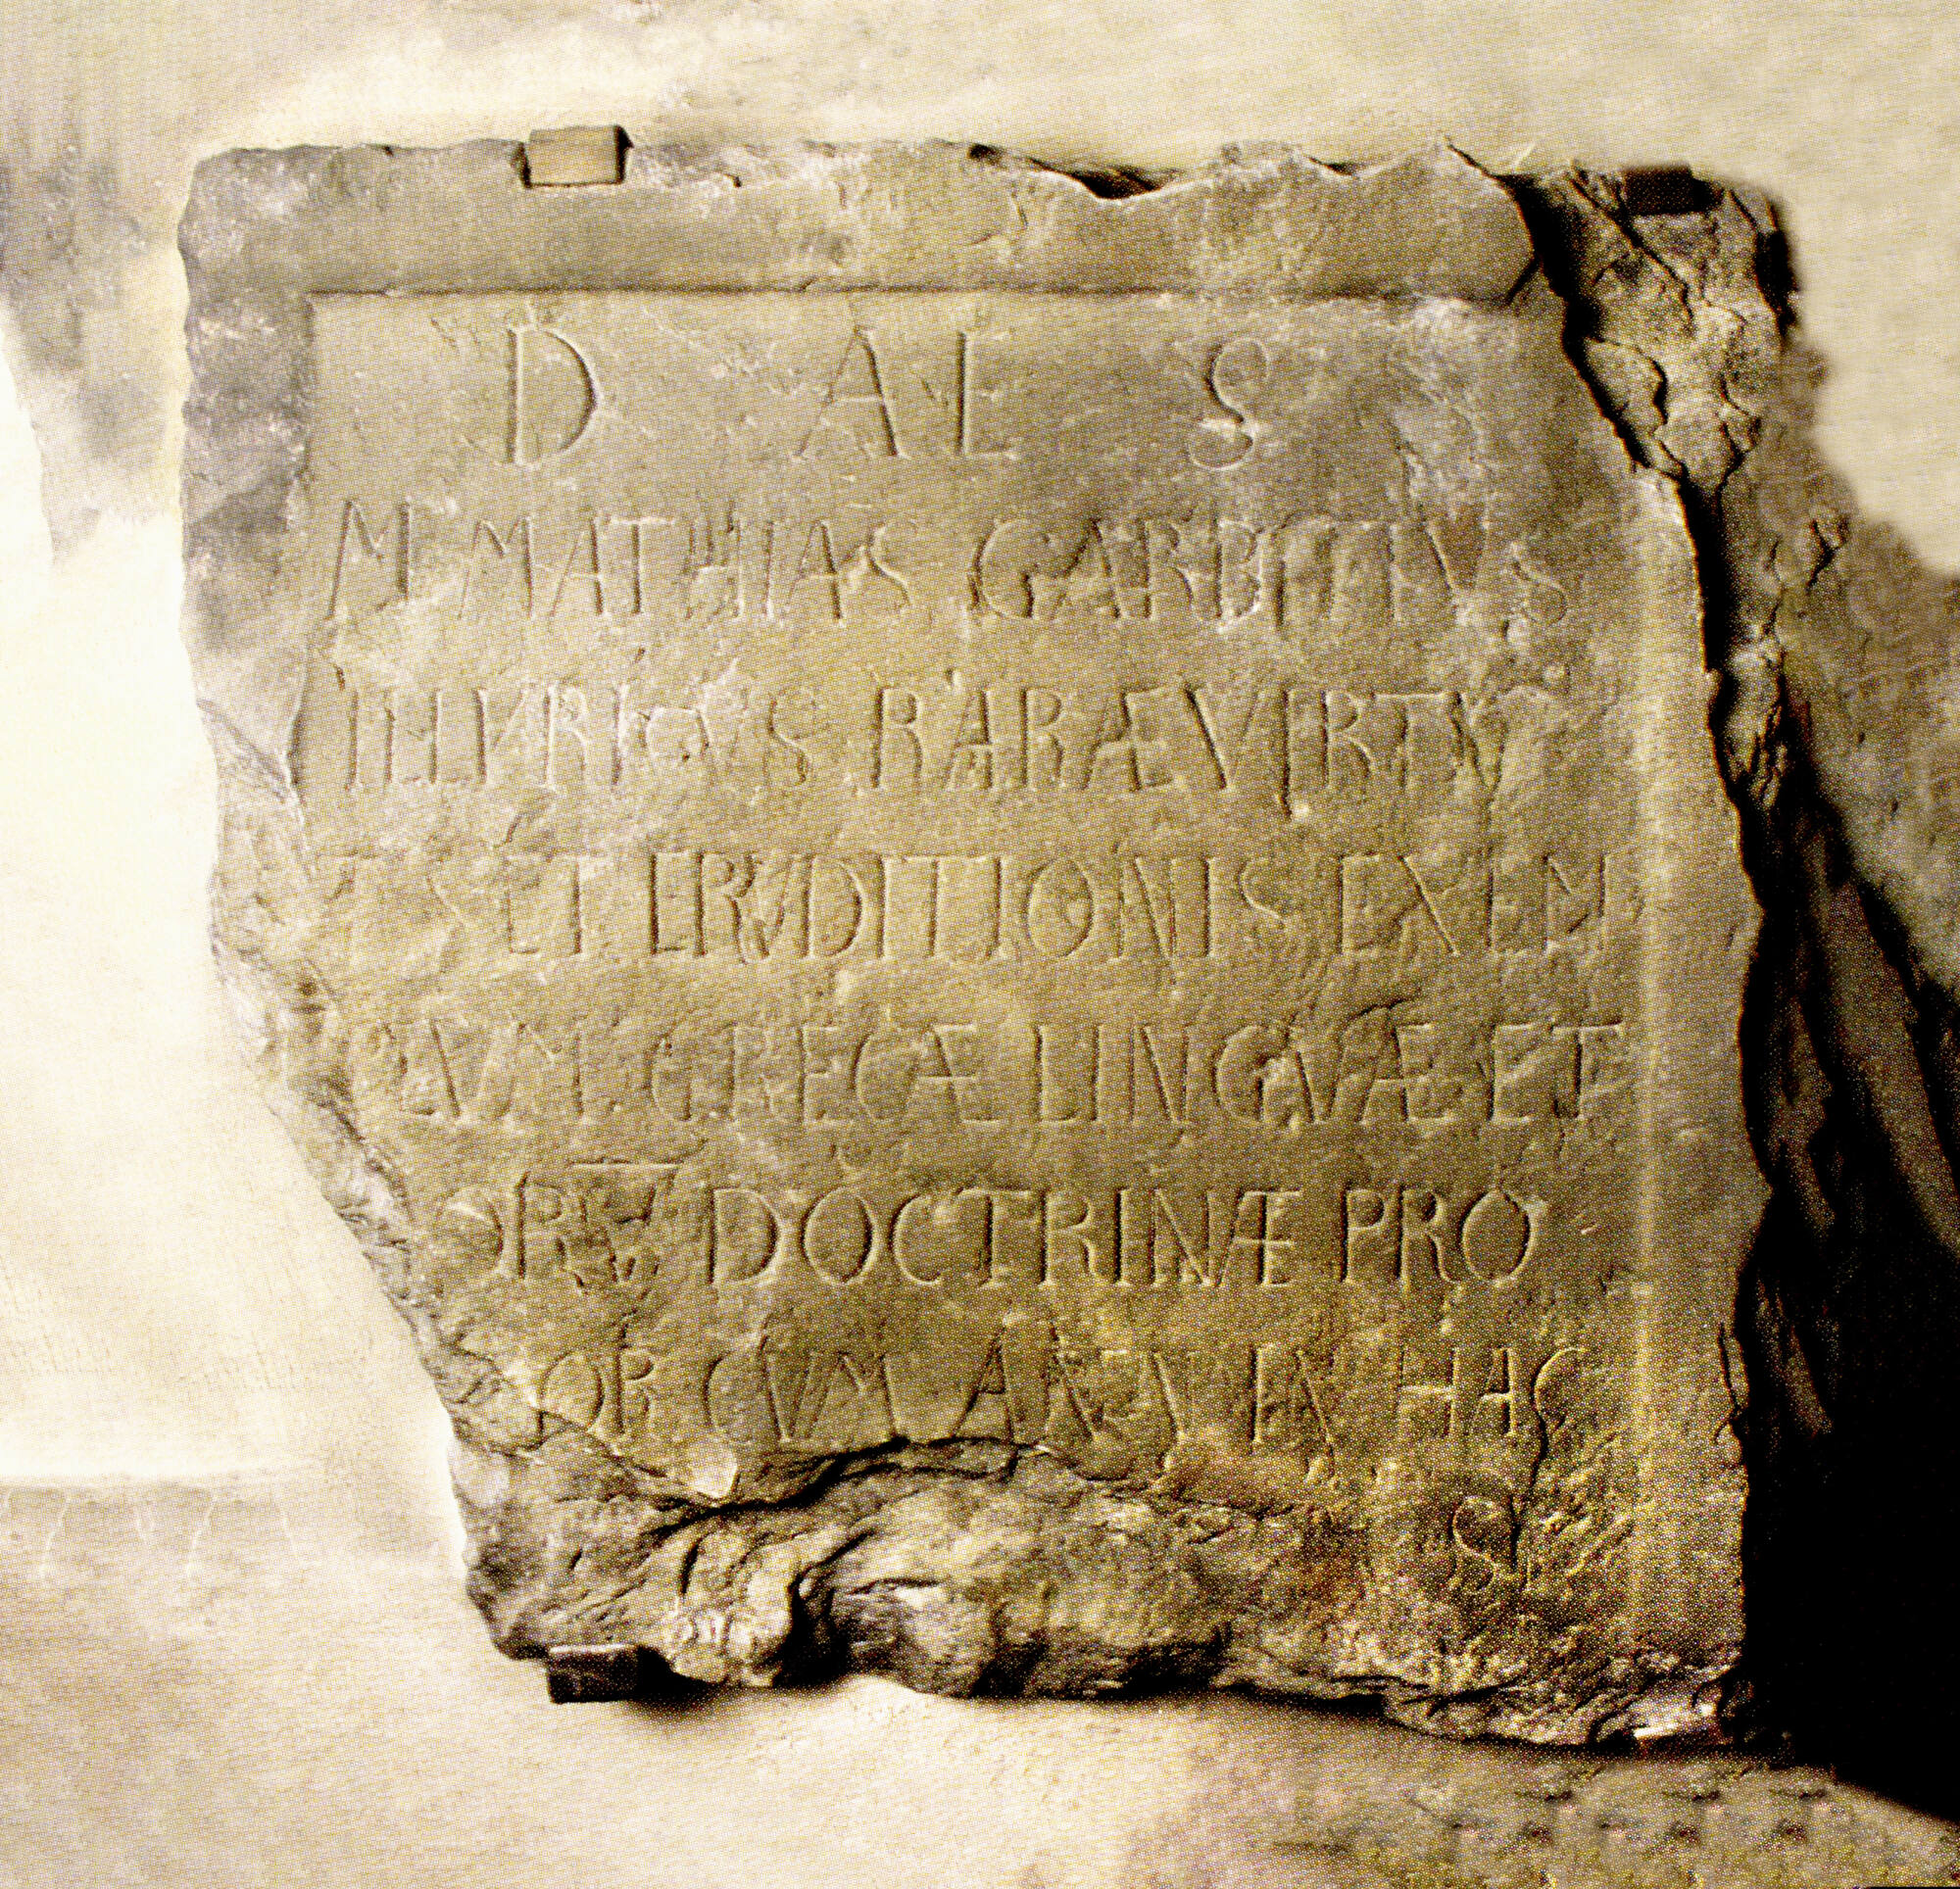 D AE S
M MATHIAS GARBITIVS
ILLYRICVS RARÆ VIRTV
TIS ET ERVDITIONIS EXEM
PLVM GRECÆ LINGVÆ ET
DOCTRINÆ PRO
OR CVM ANN IN HAC